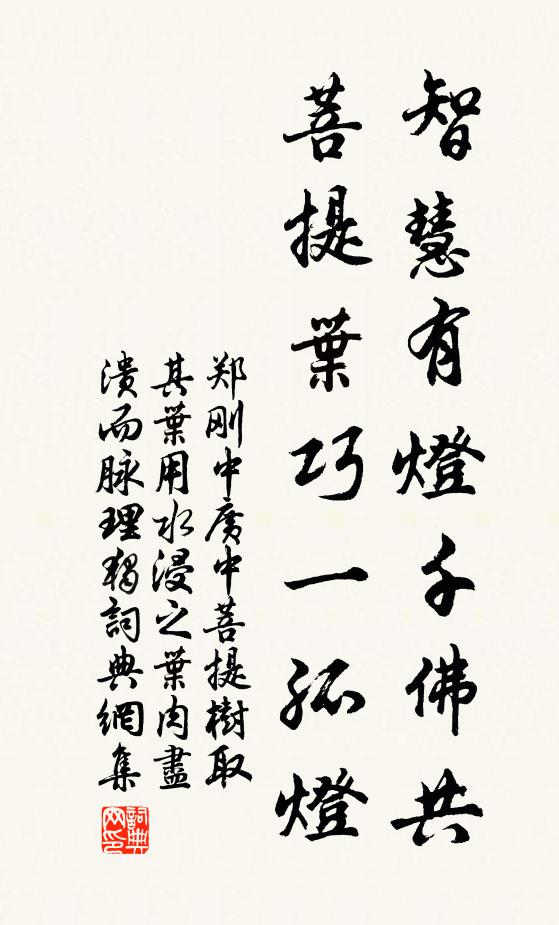 智慧有燈千佛共
菩提葉巧一孤燈
郑刚中廣中菩提樹取
其葉用水浸之葉肉盡
潰而脉理獨詞典網集
詞典
网印